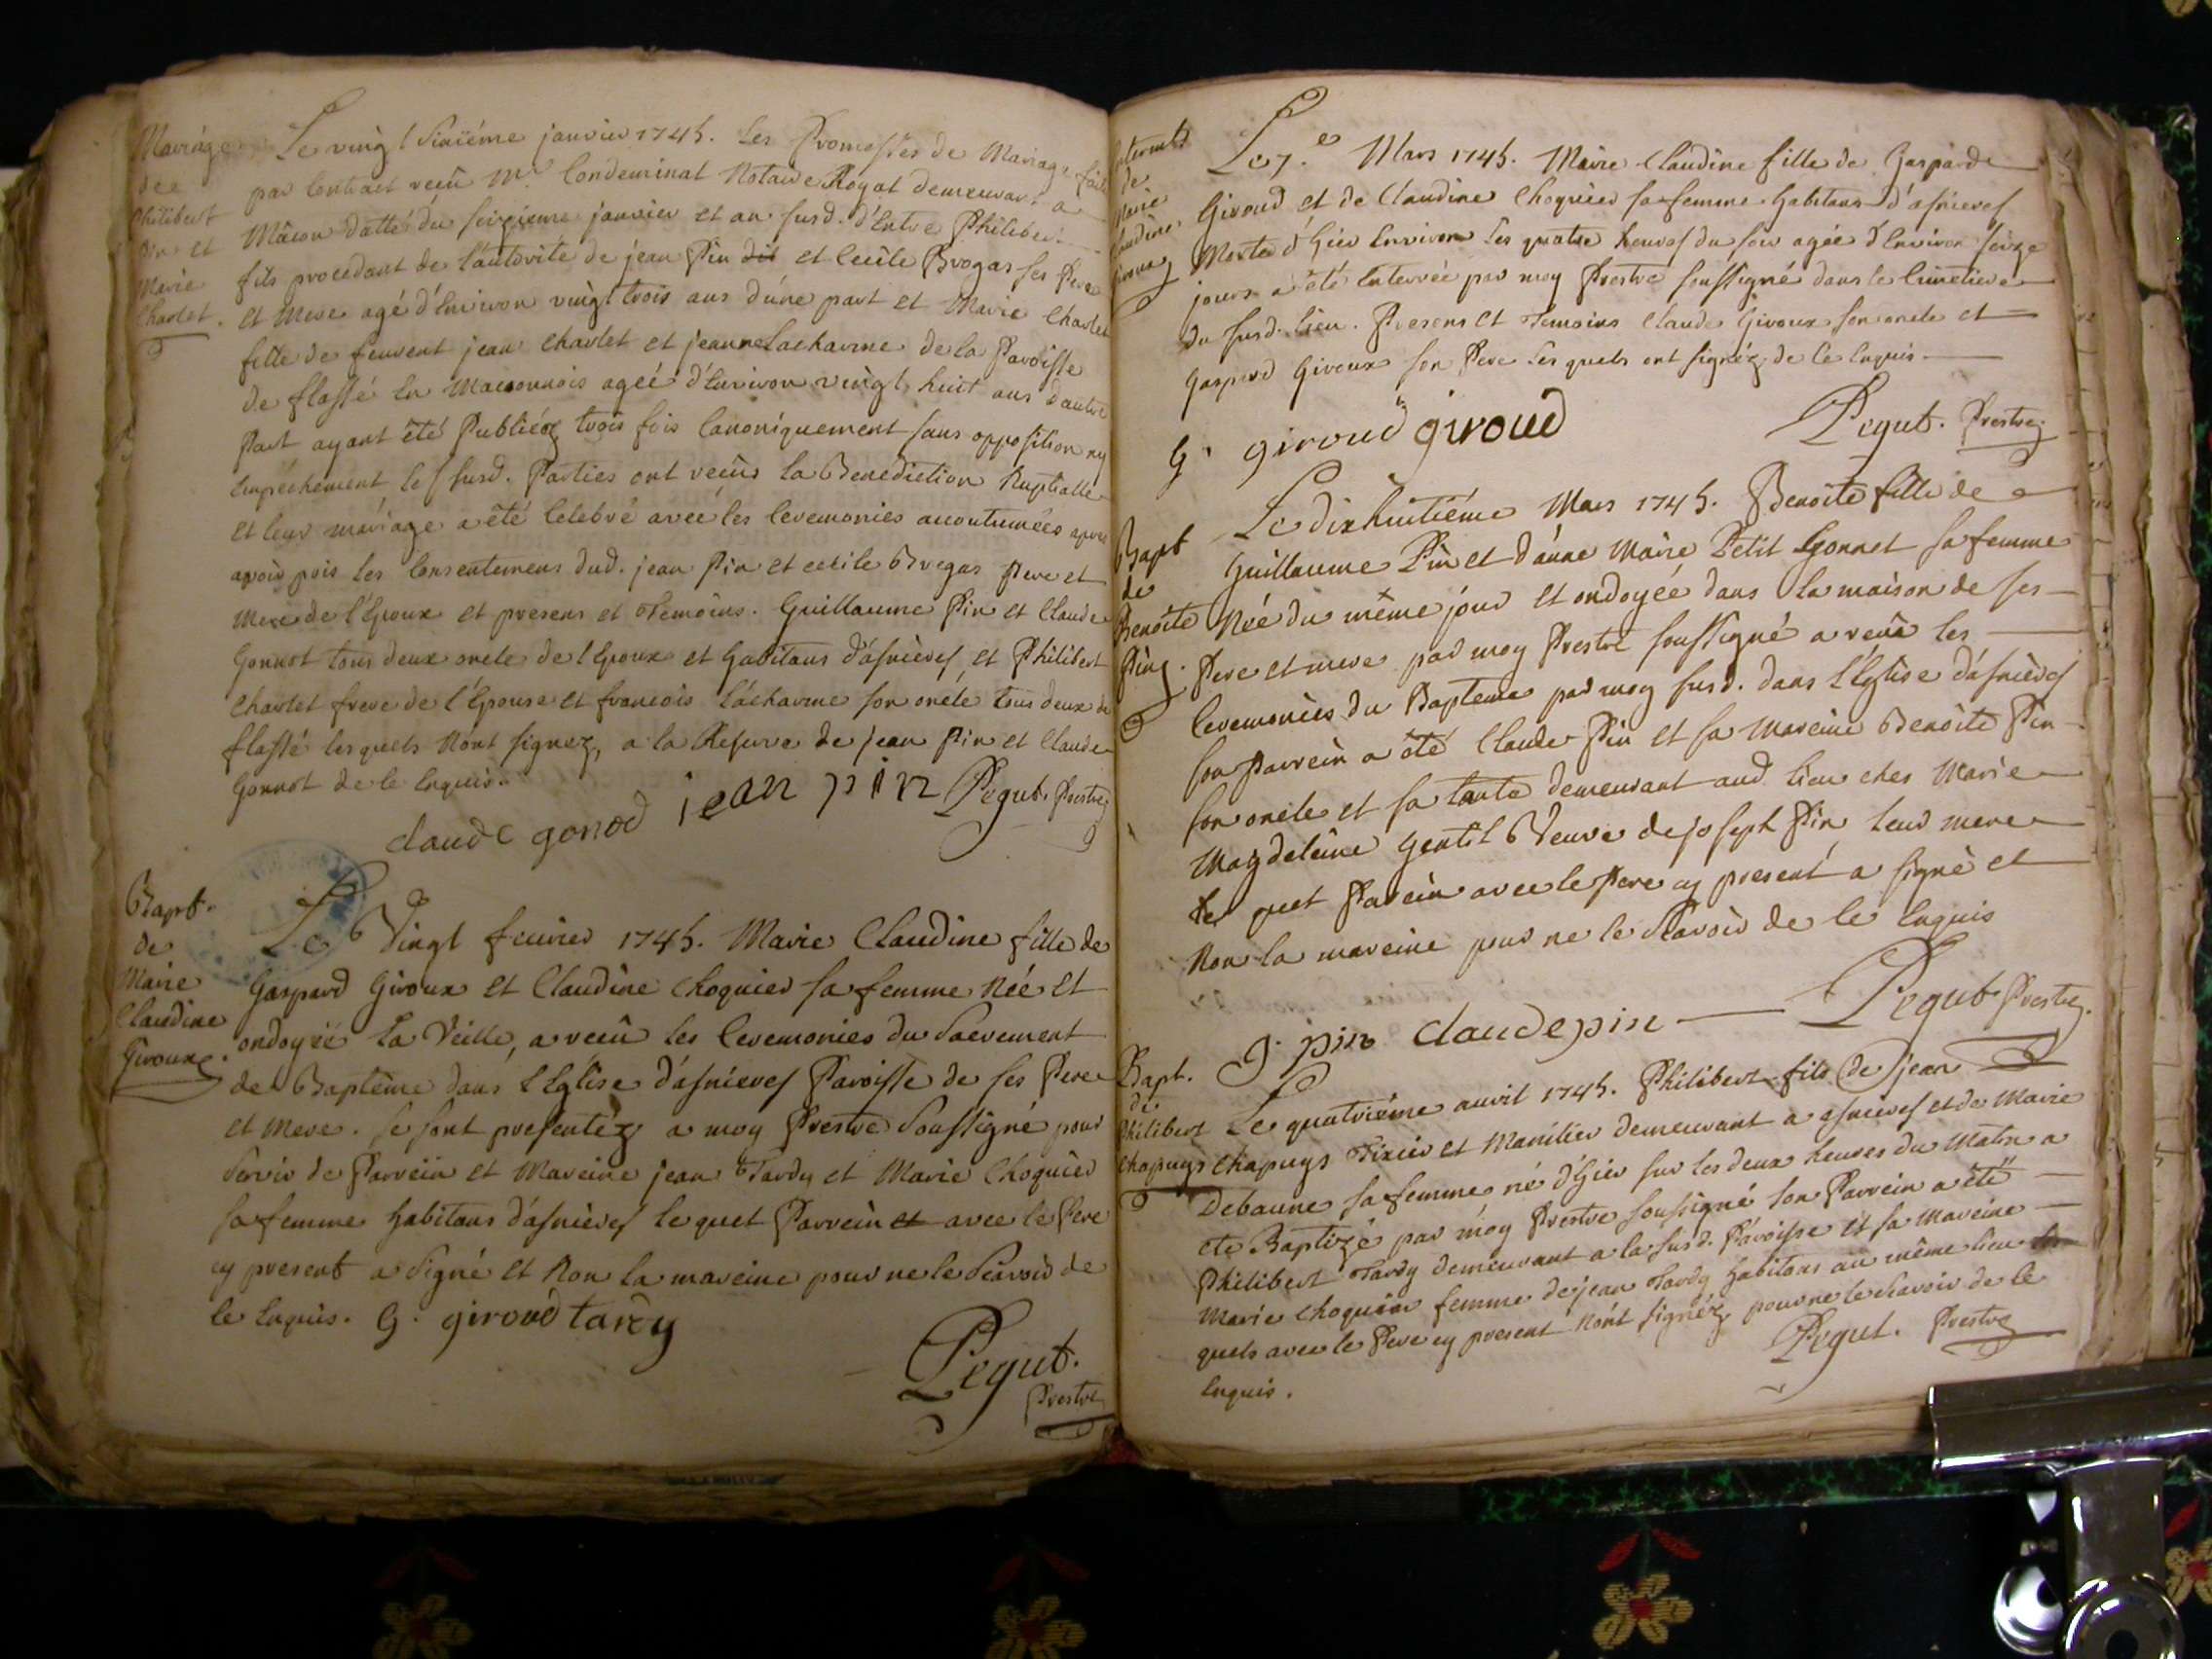 Mariage
de
Philibert
Pin et
Marie
Charlet.
Le vingt Sixiéme janvier 1745. Les Promesses de Mariage
par Contract reçû Me. Condeminat Notaire Royal demeurant a
Mâcon datté du seizieme janvier et an susd. d'Entre Philibert
fils procedant de l'autorité de jean Pin dit et Cecile Brogas ses Pere
et Mere agé d'Environ vingt trois ans d'une part et Marie Charlet
fille de feuvent jean Charlet et jeanne Lacharme de la Paroisse
de flassé en Maconnois ageé d'Environ vingt huit ans d'autre
Part ayant été Publiéez trois fois Canoniquement sans opposition ny
Empéchement les susd. Parties ont reçûs la Benediction Nuptialle
et leur mariage a été Celebré avec les Ceremonies accoutumées apres
avoir pris les Consentemens dud. jean Pin et cecile Brogas Pere et
Mere de l'Epoux et presens et Temoins. Guillaume Pin et Claude
Gonnot tous deux oncle de l'Epoux et Habitans d'asnieres, et Philibert
Charlet frere de l'Epouse et francois Lâcharme son oncle tous deux de
flassé lesquels N'ont signez, a la Reserve de jean Pin et Claude
Gonnot de ce Enquis.
claude gonod jean pin Pegut. Prestre
Bapt.
de
Marie
Claudine
Giroux.
Le Vingt fevrier 1745. Marie Claudine fille de
Gaspard Giroux et Claudine Choquier sa femme Née et
ondoyée la Veille, a reçû les Ceremonies du Sacrement
de Baptême dans l'Eglise d'asnieres Paroisse de ses Pere
et Mere. se sont presentéz a moy Prestre Soussigné pour
Servir de Parrein et Mareine jean Tardy et Marie Choquier
sa femme habitans d'asnieres lequel Parrein et avec le Pere
cy present a Signé et Non la mareine pour ne le Scavoir de
ce Enquis. G. giroud tardy
Pegut.
Prestre
Enterrement
de
Marie
Claudine
Giroux
Le 7.e Mars 1745. Marie Claudine fille de Gaspard
Giroud et de Claudine Choquier sa femme habitans d'asnieres
Morte d'hier Environ les quatre heures du soir agée d'Environ seize
jours a été Enterrée par moy Prestre soussigné dans le Cimetiere
du susd. lieu. Presens et Temoins Claude Giroux son oncle et
Gaspard Giroux son Pere lesquels ont signéz de ce Enquis
G. giroud giroud Pegut. Prestre
Bapt
de
Benoite
Pin.
Le dixhuitiéme Mars 1745. Benoite fille de
Guillaume Pin et d'anne Marie Petit Gonnet sa femme
Née du même jour et ondoyée dans la maison de ses
Pere et mere par moy Prestre soussigné a reçû les
Ceremonies du Bapteme par moy susd. dans l'Eglise d'asnieres
son Parrein a été Claude Pin et sa Mareine Benoite Pin
son oncle et sa tante demeurant aud. lieu ches Marie
Magdeleine Gentil Veuve de joseph Pin, leur mere
le quel Parein avec le Pere cy present a signé et
Non la mareine pour ne le scavoir de ce Enquis
G. pin claude pin Pegut Prestre.
Bapt.
de
Philibert
Chapuys
Le quatriéme avril 1745. Philibert fils de jean
Chapuys Tixier et Manilier demeurant a asnieres et de Marie
Debaune sa femme né d'hier sur les deux heures du Matin a
ete Baptizé par moy Prestre soussigné son Parrein a été
Philibert Tardy demeurant a la susd. Paroisse et sa Mareine
Marie Choquier femme de jean Tardy habitans au même lieu les
quels avec le Pere cy present N'ont signéz pour ne le scavoir de ce
Enquis. Pegut. Prestre